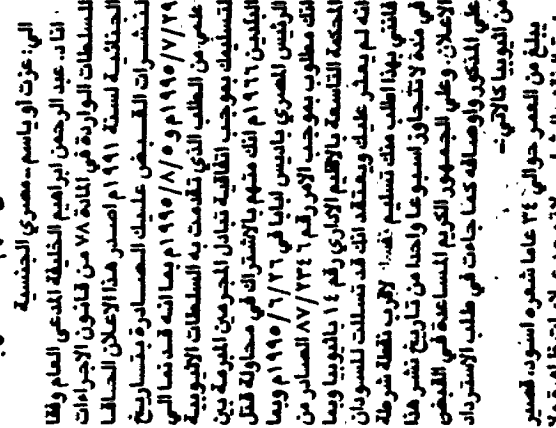 الى: عزت او ياسم - مصري الجنسية
انا د. عبد الرحمن ابراهيم الخليفة المدعى العام وفقا
للسلطات الواردة في المادة ٧٨ من قانون الاجراءات
الجنائية لسنة ١٩٩١م اصدر هذا الاعلان الحاقا
لنشرات القبض عليك الصادرة بتاريخ
١٩٩٥/٧/٢٩م و ١٩٩٥/٨/٥م بما انه قد نما الي
علمي من الطلب الذي تقدمت به السلطات الاثيوبية
لتسليمك بموجب اتفاقية تبادل المجرمين المبرمة بين
البلدين ١٩٦٦م انك متهم بالاشتراك في محاولة قتل
الرئيس المصري باديس ابابا في ١٩٩٥/٦/٢٦م وبما
انك مطلوب بموجب الامر رقم ٨٧/٢٣٤٦ الصادر من
المحكمة التاسعة بالاقليم الاداري رقم ١٤ باثيوبيا وبما
انه لم يعثر عليك ويعتقد انك قد تسللت للسودان
فانني بهذا اطلب منك تسليم نفسك لاقرب نقطة شرطة
في مدة لا تتجاوز اسبوعا واحدا من تاريخ نشر هذا
الاعلان. وعلي الجمهور الكريم المساعدة في القبض
علي المذكور واوصافه كما جاءت في طلب الاسترداد
من اثيوبيا كالاتي:-
يبلغ من العمر حوالي ٣٤ عاما شعره اسود، قصير